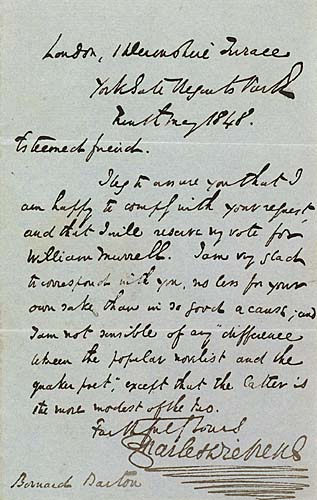 London, 1 Devonshire Terrace
York Gate Regents Park
Ninth May 1848.
Esteemed friend.
I beg to assure you that I
am happy to comply with your request,
and that I will reserve my vote for
William Murrell. I am very glad
to correspond with you, no less for your
own sake than in so good a cause; and
I am not sensible of any "difference
between the popular novelist and the
quaker poet" except that the latter is
the more modest of the two.
Faithfully Yours
Charles Dickens
Bernard Barton